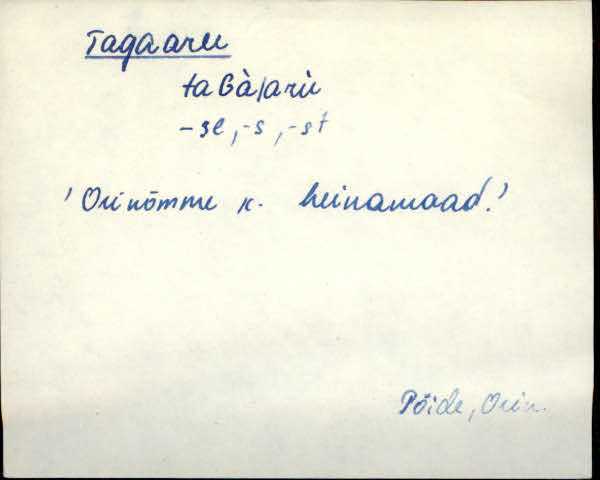 Tagaaru
taGà/arù
-se, -s, -st
'Orinõmme k. heinamaad.'
Pöide, Orin.